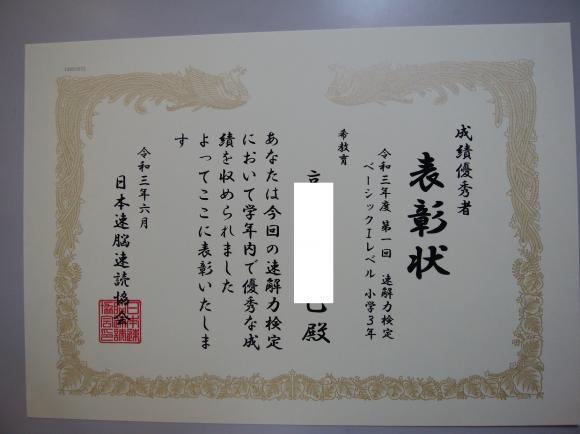 成績優秀者
表彰状
令和三年度 第一回 速解力検定
ベーシックIレベル 小学3年
希教育
殿
あなたは今回の速解力検定
において学年内で優秀な成
績を収められました
よってここに表彰いたしま
す
令和三年六月
日本速脳速読協会